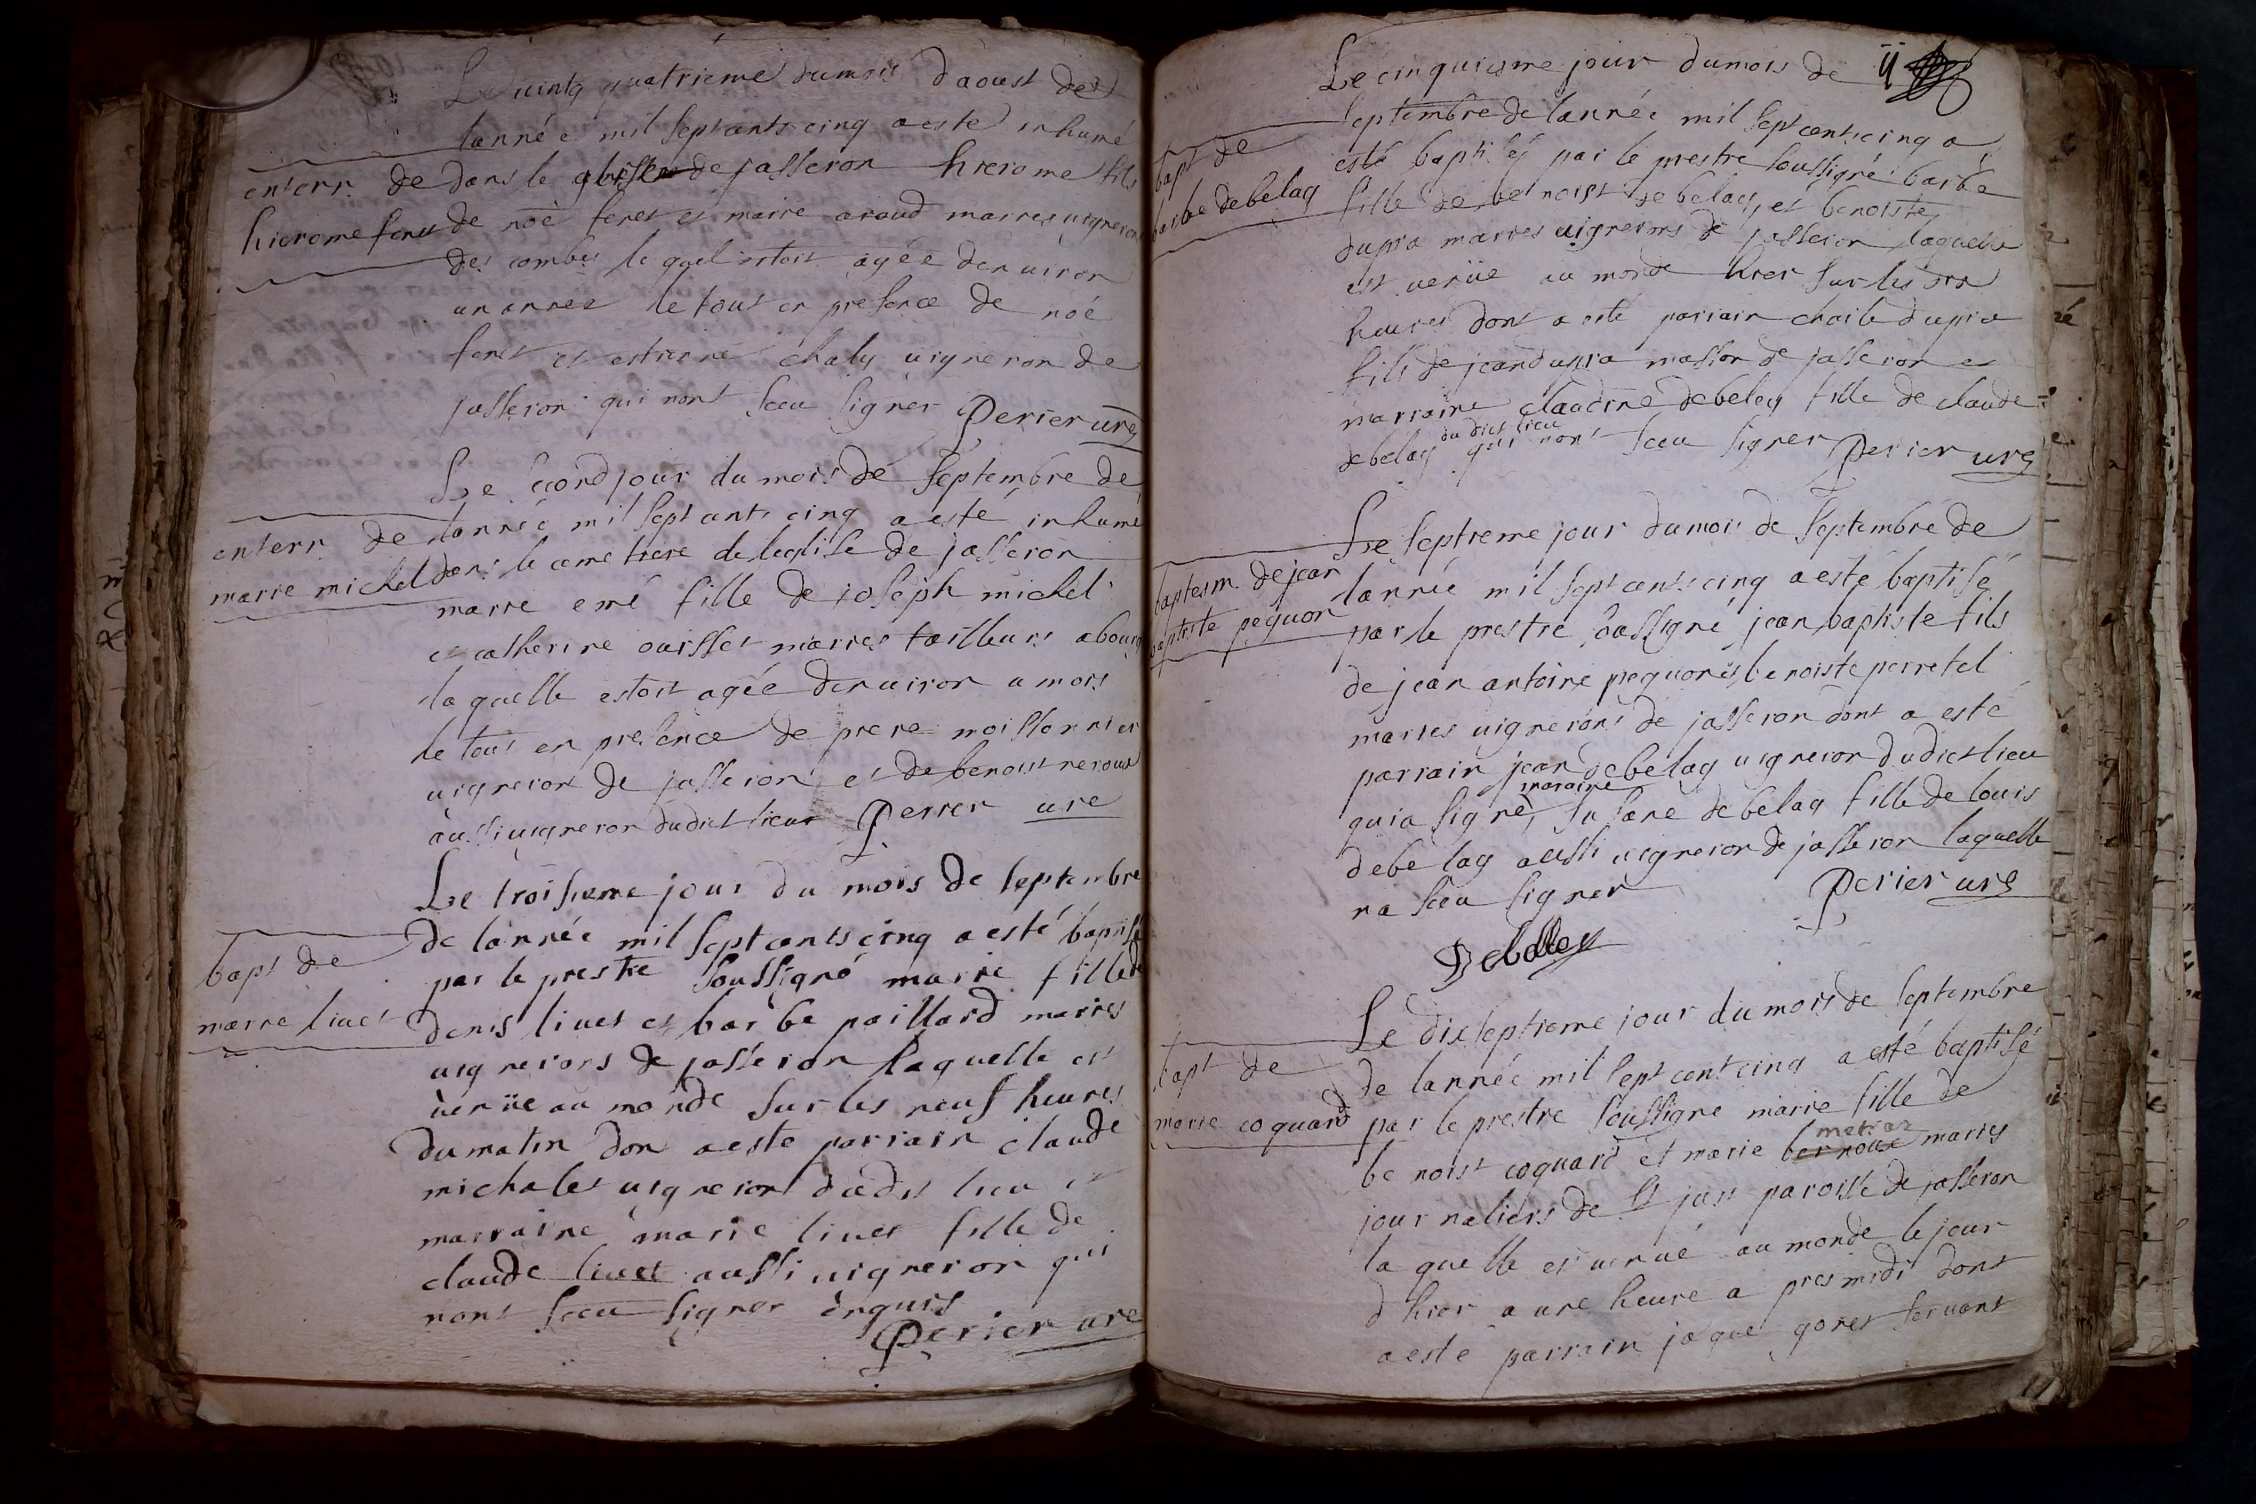 Le vintq quatrieme dumois daoust de
lannée mil sept cents cinq a esté inhumé
enterr de
hierome feret
dans le de jasseron hierome fils
de noé feret et marie araud maries vignerons
des combes lequel estoit agée denviron
un année le tout en presence de noé
feret et estienne chaby vigneron de
jasseron qui nont sceu signer Perier ure
Le secondjour du mois de septembre de
enterr de
marie michel
lannée mil sept cents cinq a esté inhumé
dans le cemetiere de leglise de jasseron
marie emé fille de ioseph michel
et catherine ouisset maries tailleurs a bourg
laquelle estoit agée denviron u mois
le tout en presence de piere moissonnier
vigneron de jasseron et de benoist reroud
aussi vigneron dudict lieu Perier ure
Le troisieme jour du mois de septembre
bapt de
marie livet
de lannée mil sept cents cinq a esté baptisé
par le prestre soussigné marie fille de
denis livet et barbe paillard maries
vignerons de jasseron laquelle est
venüe au monde sur les neuf heures
du matin don a esté pariain claude
michalet vigneron dudit lieu et
marraine marie livet fille de
claude livet aussi vigneron qui
nont sceu signer enquis
Perier ure
ij
Le cinquieme jour dumois de
septembre de lannée mil sept cents cinq a
bapt de
barbe debelay
esté baptisés par le prestre soussigné barbe
fille de benoist de belay, et benoiste
dupra maries vignerons de jasseron laquelle
est venüe au monde hier sur les six
heures dont a esté pariain charle dupra
fils de jean dupra masson de jasseron et
marraine claudine debelay fille de claude
du dict lieu
debelay qui nont sceu signer Perier ure
Le septieme jour dumois de septembre de
baptesm de jean
baptiste pequon
lannée mil sept cents cinq a esté baptisé
par le prestre soussigné jean baptiste fils
de jean antoine pequon et benoiste perretel
maries vignerons de jasseron dont a esté
parrain jean debelay vigneron dudict lieu
maraine
qui a signé, susane debelay fille de louis
debelay aussi vigneron de jasseron laquelle
na sceu signer Perier ure
Deballey
Le dixseptieme jour du mois de septembre
bapt de
marie coquard
de lannée mil sept cent cinq a esté baptisé
par le prestre soussigné marie fille de
metras
benoist coquard et marie bernoux maries
journaliers de st just paroisse de jasseron
laquelle est venué au monde le jour
dhier a une heure a pres midi dont
a esté parrain jaque goret servant